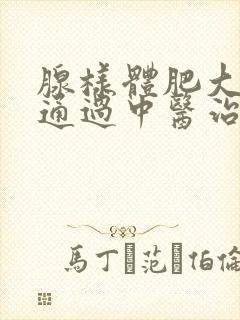 腺樣體肥大
通過中醫治
馬丁·范·伯倫